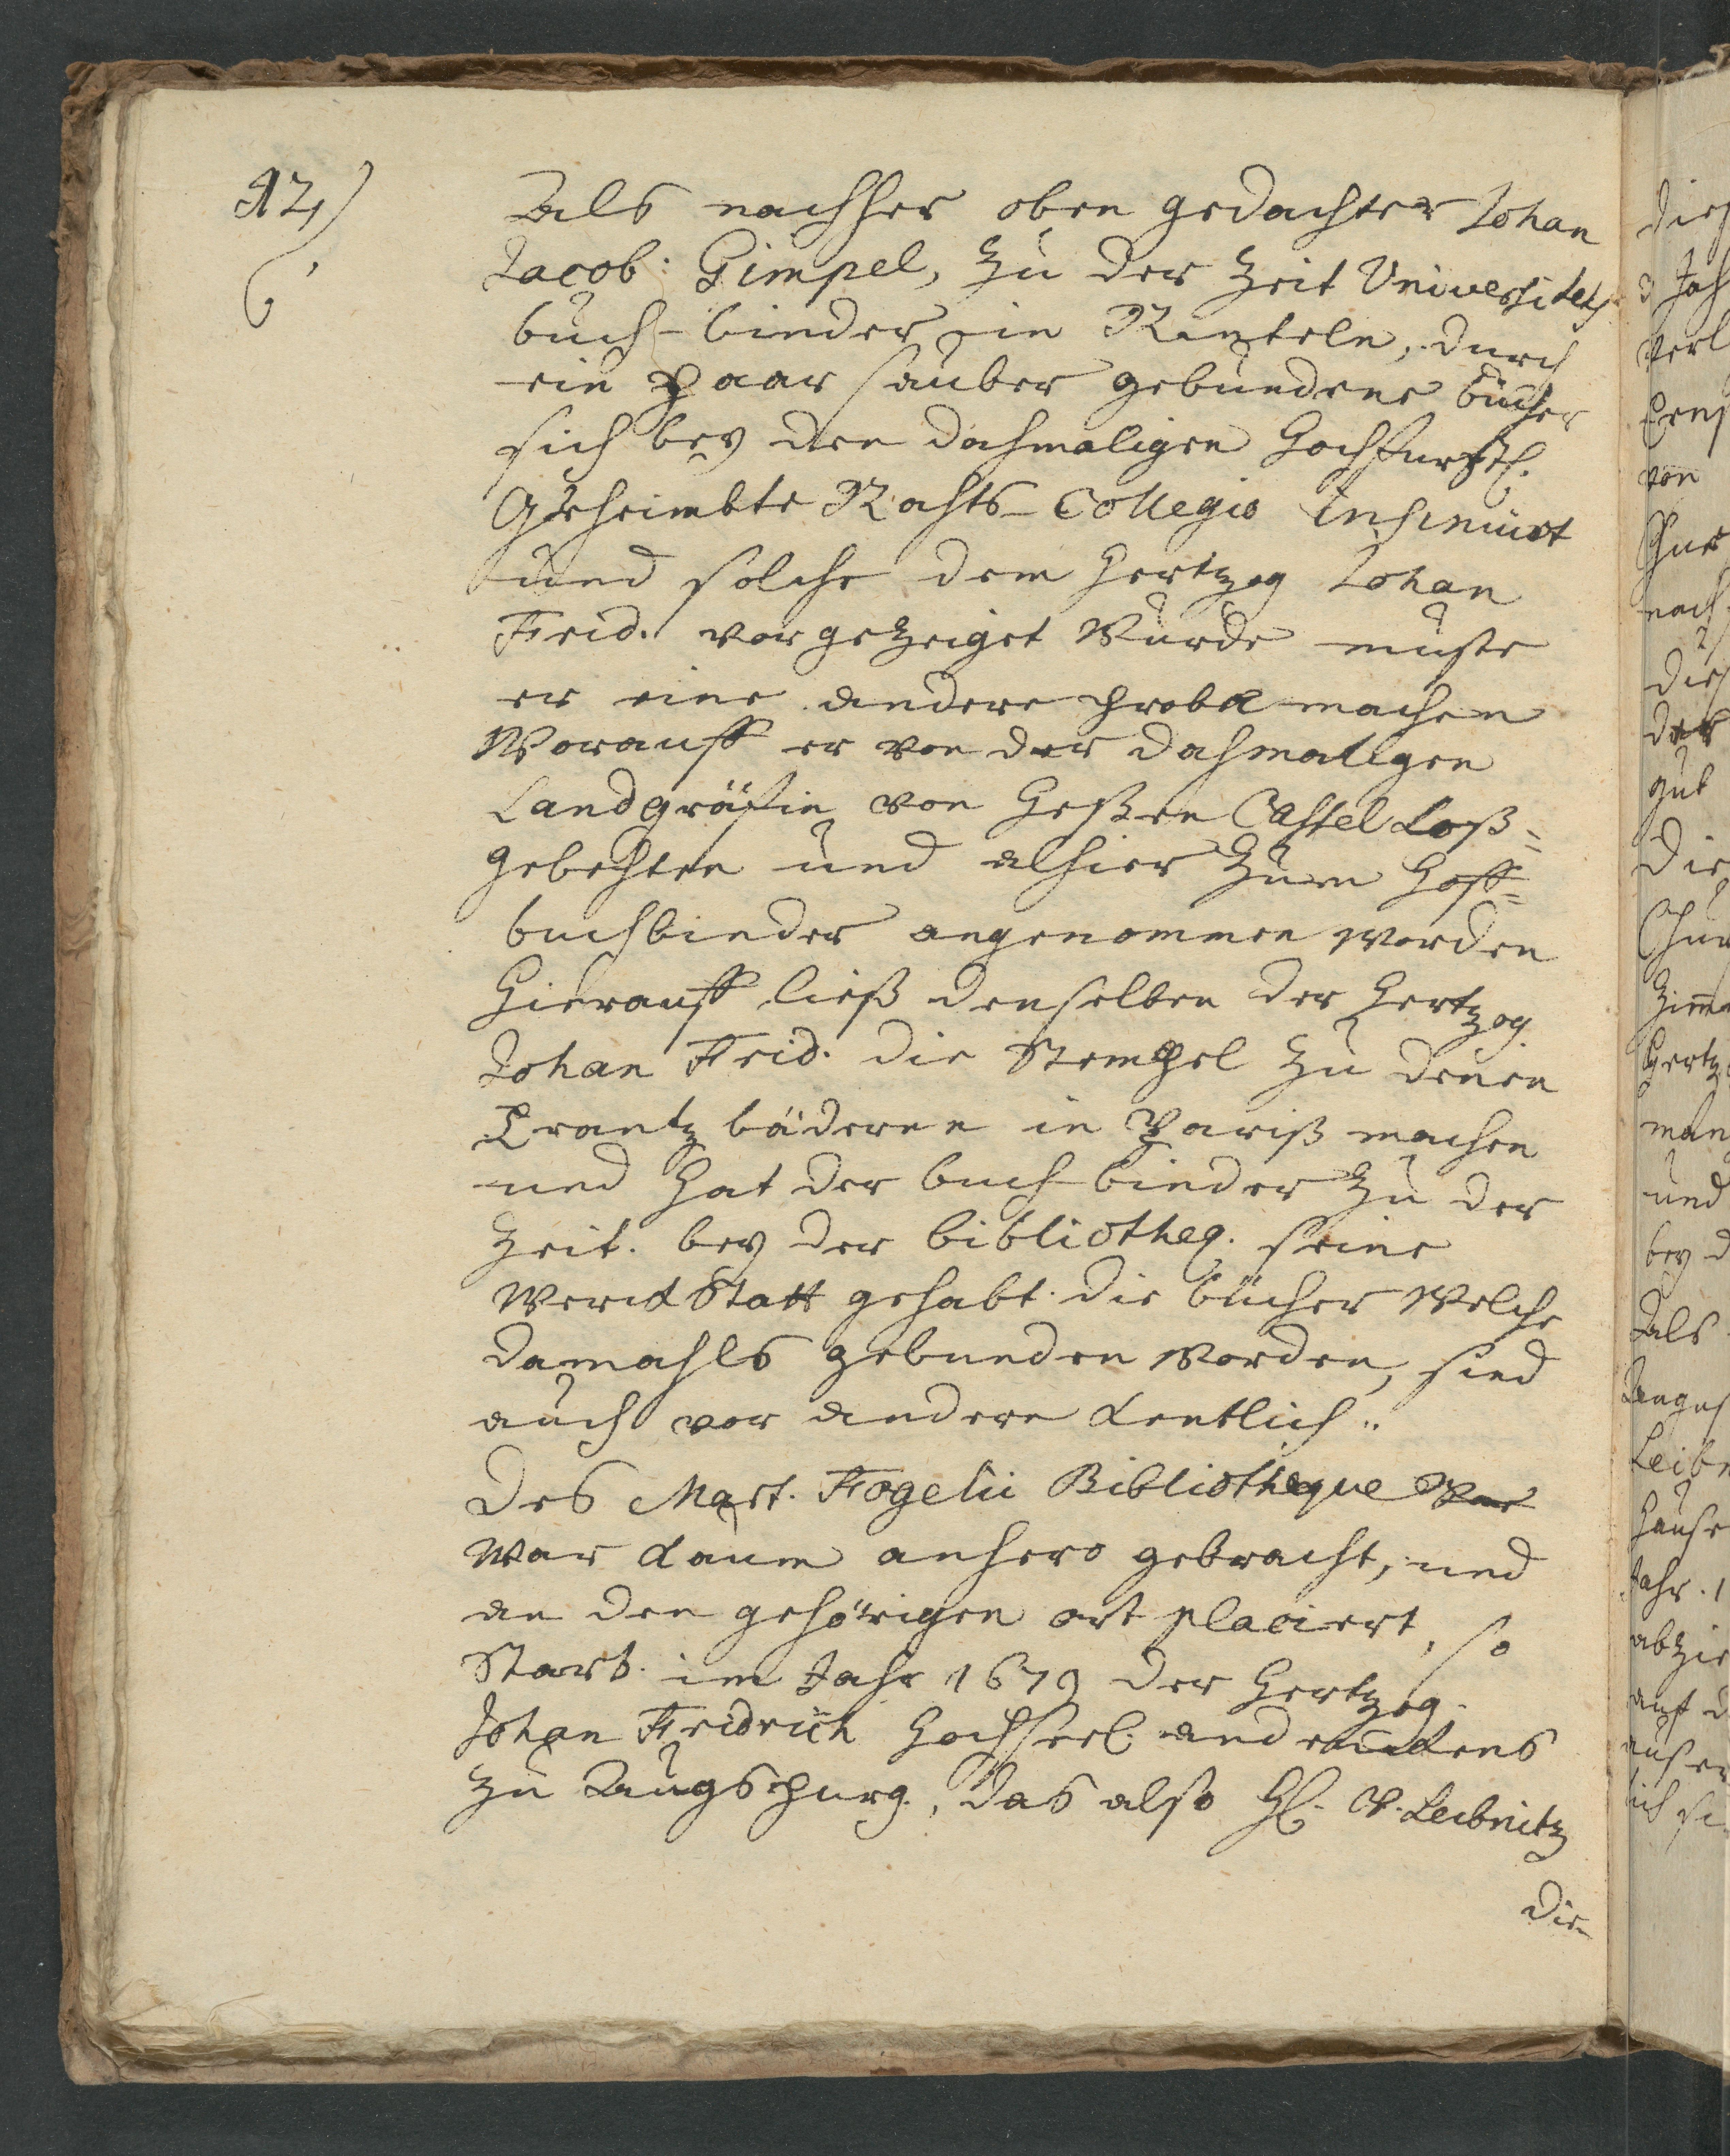 12,)
Als nachher oben gedachter Johan
Jacob: Gimpel, zu der Zeit Universitets
buch-binder in Rinteln, durch
ein Paar sauber gebundene bücher
sich bey den dahmaligen Hochfürstl.
Geheimbte Rahts-Collegio insinuirt
und solche dem Hertzog Johan
Frid. vorgezeiget wurde muste
er eine andere probe machen
Worauff er von der dahmaligen
Landgräfin von Heßen Cassel Loß=
gebehten und alhier zum Hoff=
buchbinder angenommen worden
Hierauff ließ denselben der Hertzog
Johan Frid. die Stempel zu denen
Frantz bänderen in Pariß machen
und hat der buch-binder zu der
Zeit. bey der bibliotheq. seine
Werckstatt gehabt. die bücher welche
damahls gebunden worden, sind
auch vor andere kentlich..
Des Mart. Fogelii Bibliotheque
War kaum anhero gebracht, und
an den gehörigen ort placiert, so
Starb. im Jahr 1679 der Hertzog.
Johan Fridrich Hochseel. andenckens
zu Augspurg., das also H. v. Leibnitz
die